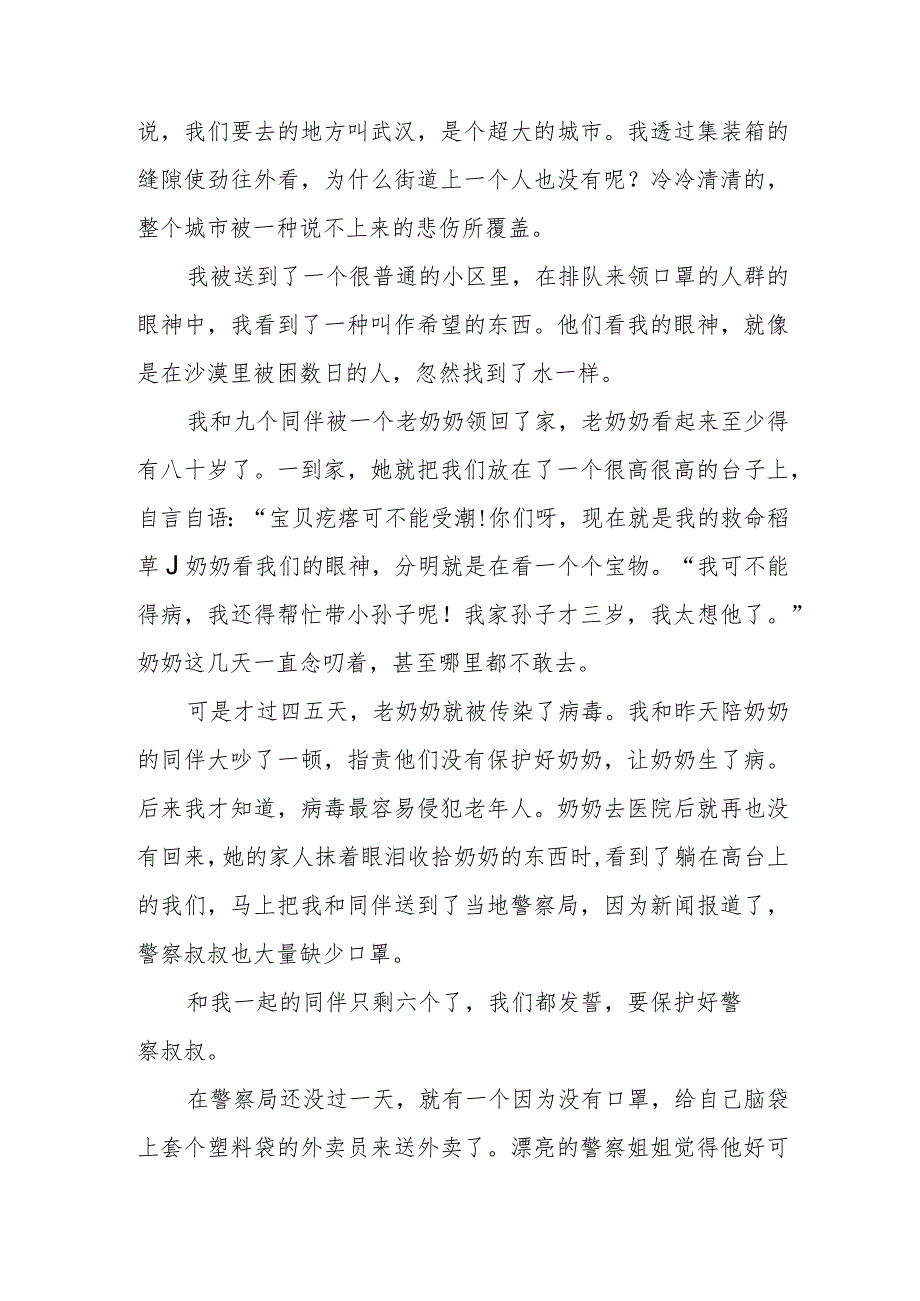 说，我们要去的地方叫武汉，是个超大的城市。我透过集装箱的
缝隙使劲往外看，为什么街道上一个人也没有呢？冷冷清清的，
整个城市被一种说不上来的悲伤所覆盖。
我被送到了一个很普通的小区里，在排队来领口罩的人群的
眼神中，我看到了一种叫作希望的东西。他们看我的眼神，就像
是在沙漠里被困数日的人，忽然找到了水一样。
我和九个同伴被一个老奶奶领回了家，老奶奶看起来至少得
有八十岁了。一到家，她就把我们放在了一个很高很高的台子上，
自言自语：“宝贝疙瘩可不能受潮!你们呀，现在就是我的救命稻
草J奶奶看我们的眼神，分明就是在看一个个宝物。“我可不能
得病，我还得帮忙带小孙子呢！我家孙子才三岁，我太想他了。”
奶奶这几天一直念叨着，甚至哪里都不敢去。
可是才过四五天，老奶奶就被传染了病毒。我和昨天陪奶奶
的同伴大吵了一顿，指责他们没有保护好奶奶，让奶奶生了病。
后来我才知道，病毒最容易侵犯老年人。奶奶去医院后就再也没
有回来，她的家人抹着眼泪收拾奶奶的东西时,看到了躺在高台上
的我们，马上把我和同伴送到了当地警察局，因为新闻报道了，
警察叔叔也大量缺少口罩。
和我一起的同伴只剩六个了，我们都发誓，要保护好警
察叔叔。
在警察局还没过一天，就有一个因为没有口罩，给自己脑袋
上套个塑料袋的外卖员来送外卖了。漂亮的警察姐姐觉得他好可